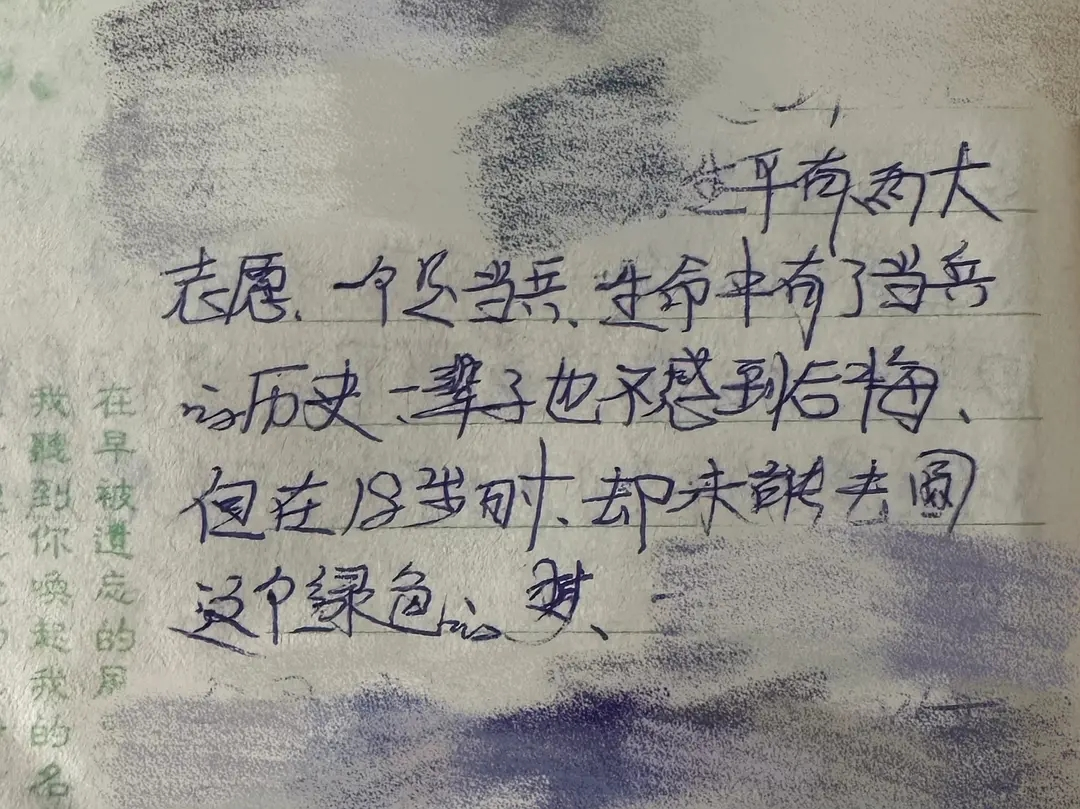 生平有两大
志愿、一个是当兵、生命中有了当兵
的历史、一辈子也不感到后悔、
但在18岁时、却未能去圆
这个绿色的梦、
在早被遗忘的
我听到你唤起我的名